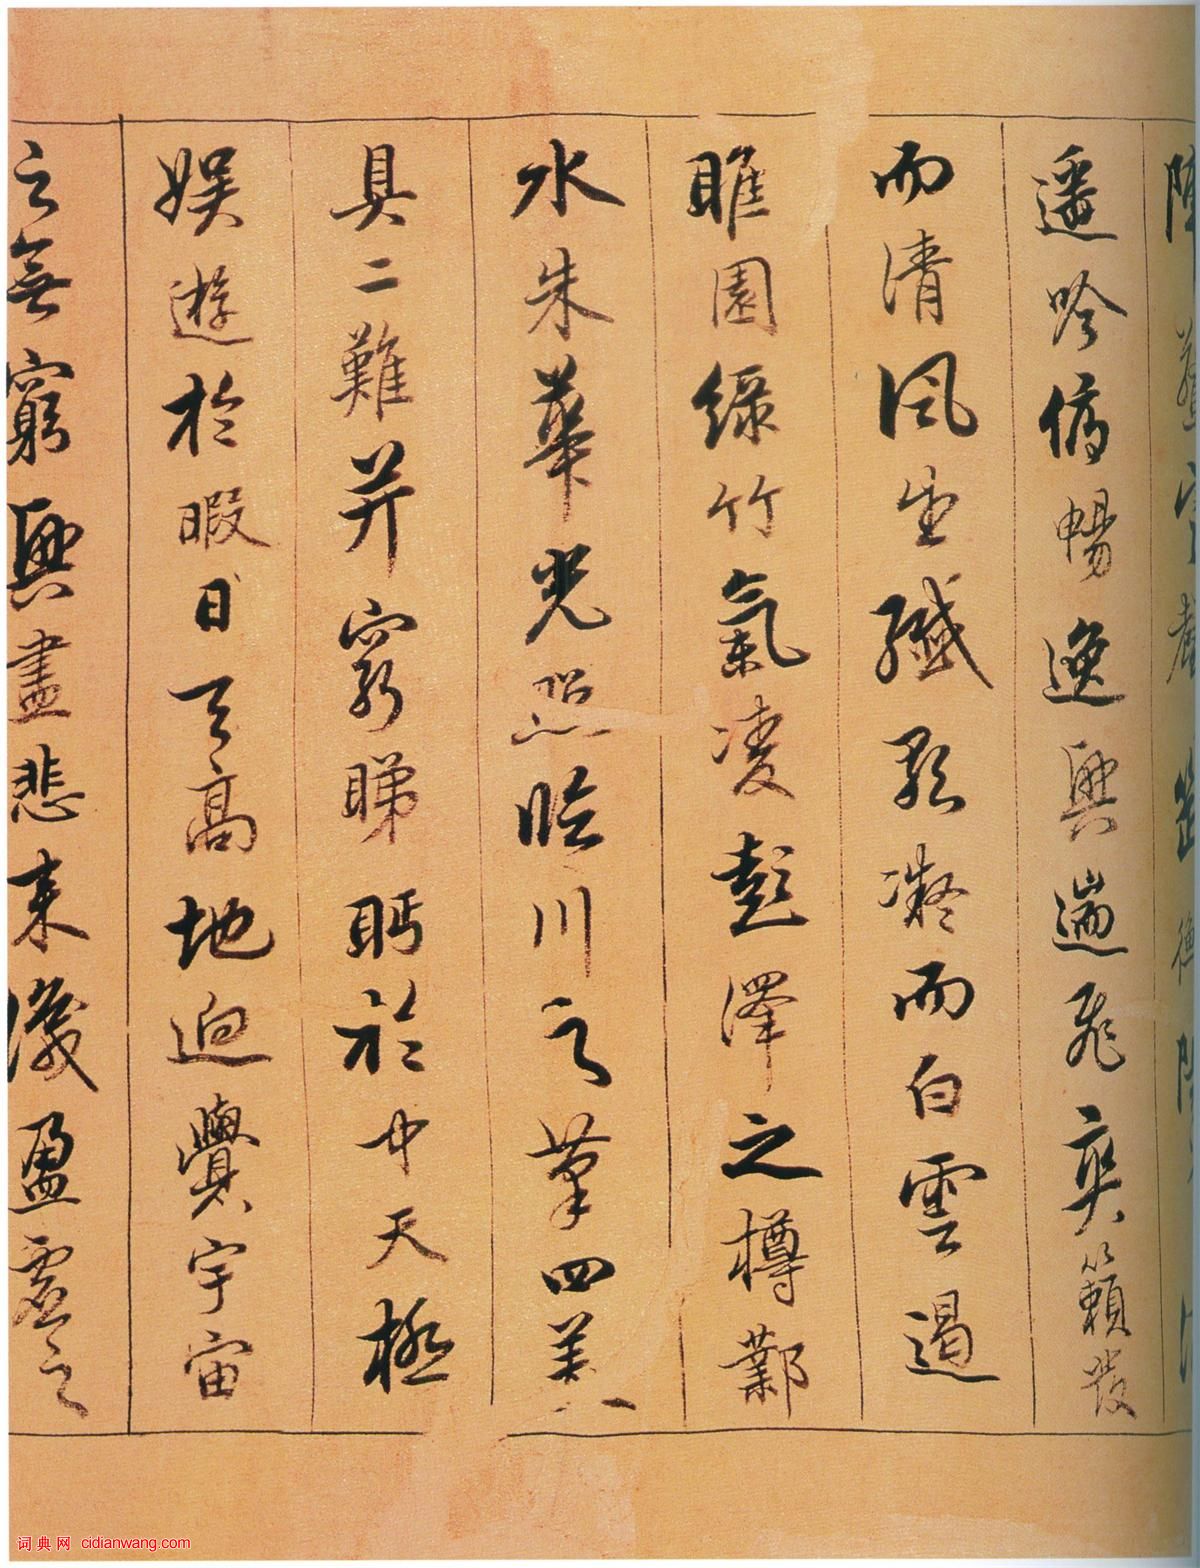 遥吟俯暢逸興遄飛爽籟發
而清風生纖歌凝而白雲遏
睢園緑竹氣凌彭澤之樽鄴
水朱華光照臨川之筆四美
具二難并窮睇眄於中天極
娯遊於暇日天高地迥覺宇宙
之無窮興盡悲来識盈虚之
词典网 cidianwang.com